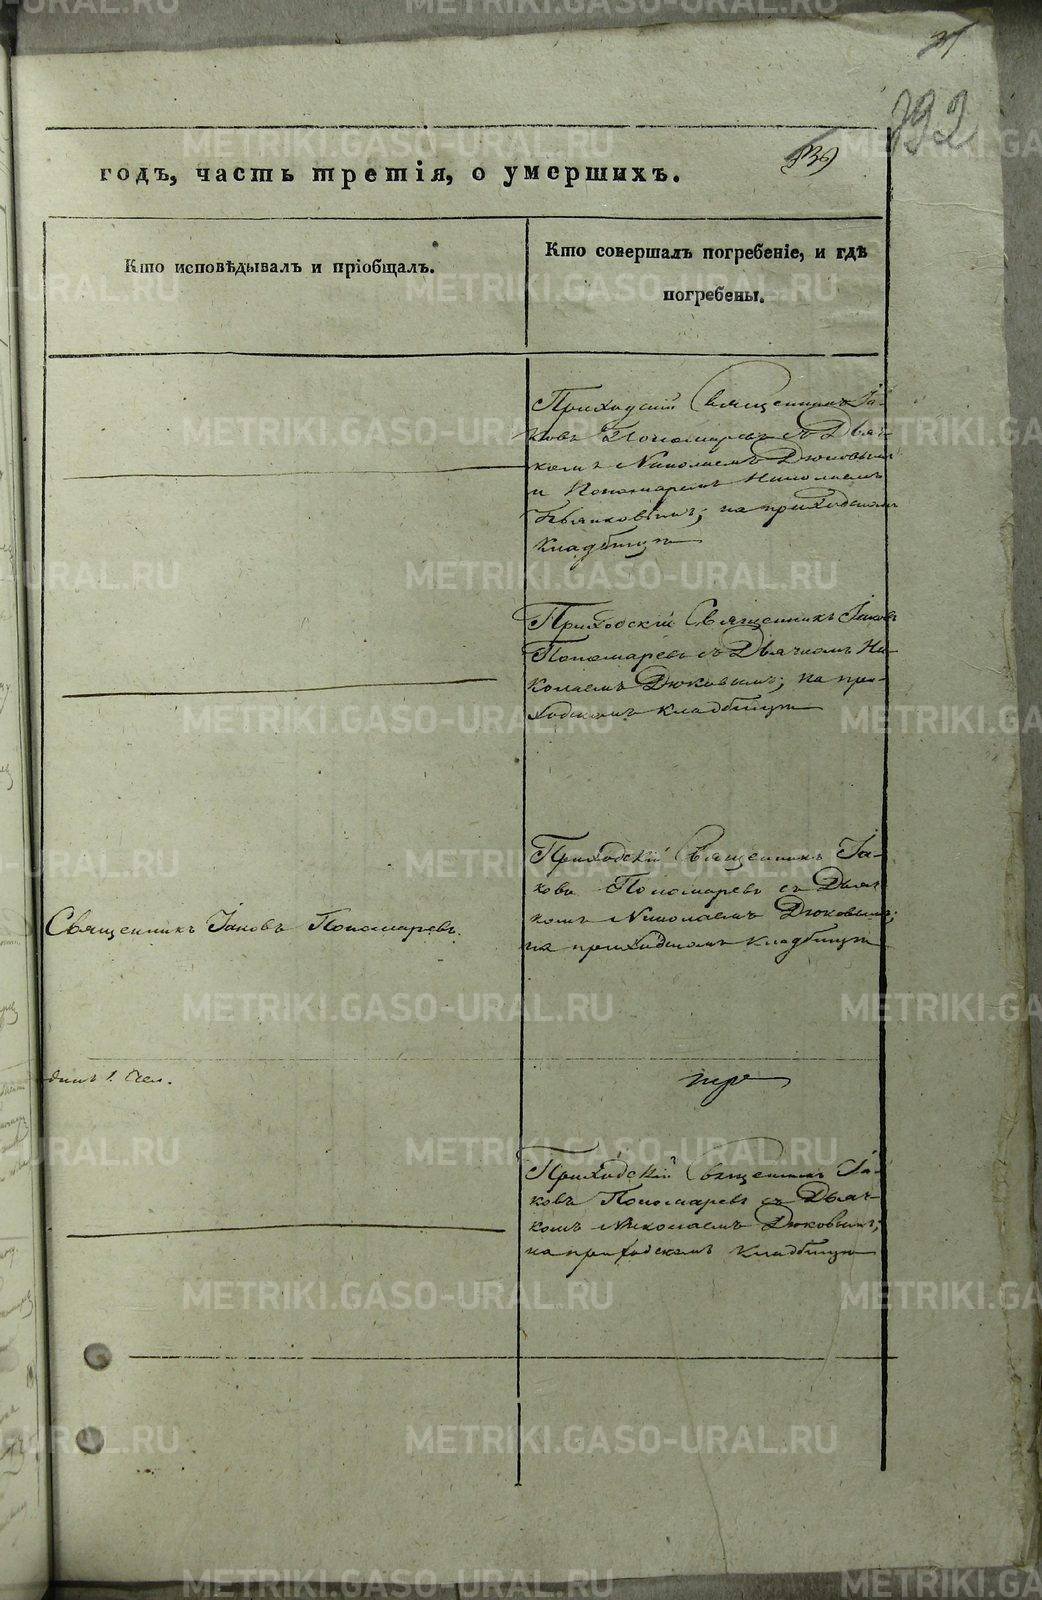 392
годъ, часть третія, о умершихъ.
Кто исповѣдывалъ и пріобщалъ.
Кто совершалъ погребеніе, и гдѣ
погребены.
Приходскій Священникъ Іа-
ковъ Пономаревъ съ Дьяч-
комъ Николаемъ Дюковымъ
и Пономаремъ Николаемъ
на приходскомъ
кладбищѣ
Приходскій Священникъ Іаковъ
Пономаревъ съ Дьячкомъ Ни-
колаемъ Дюковымъ; на при-
ходскомъ кладбищѣ
Приходскій Священникъ Іа-
ковъ Пономаревъ съ Дьяч-
комъ Николаемъ Дюковымъ;
на приходскомъ кладбищѣ
Священникъ Іаковъ Пономаревъ.
Приходскій Священникъ Іа-
ковъ Пономаревъ съ Дьяч-
комъ Николаемъ Дюковымъ;
на приходскомъ кладбищѣ
METRIKI.GASO-URAL.RU